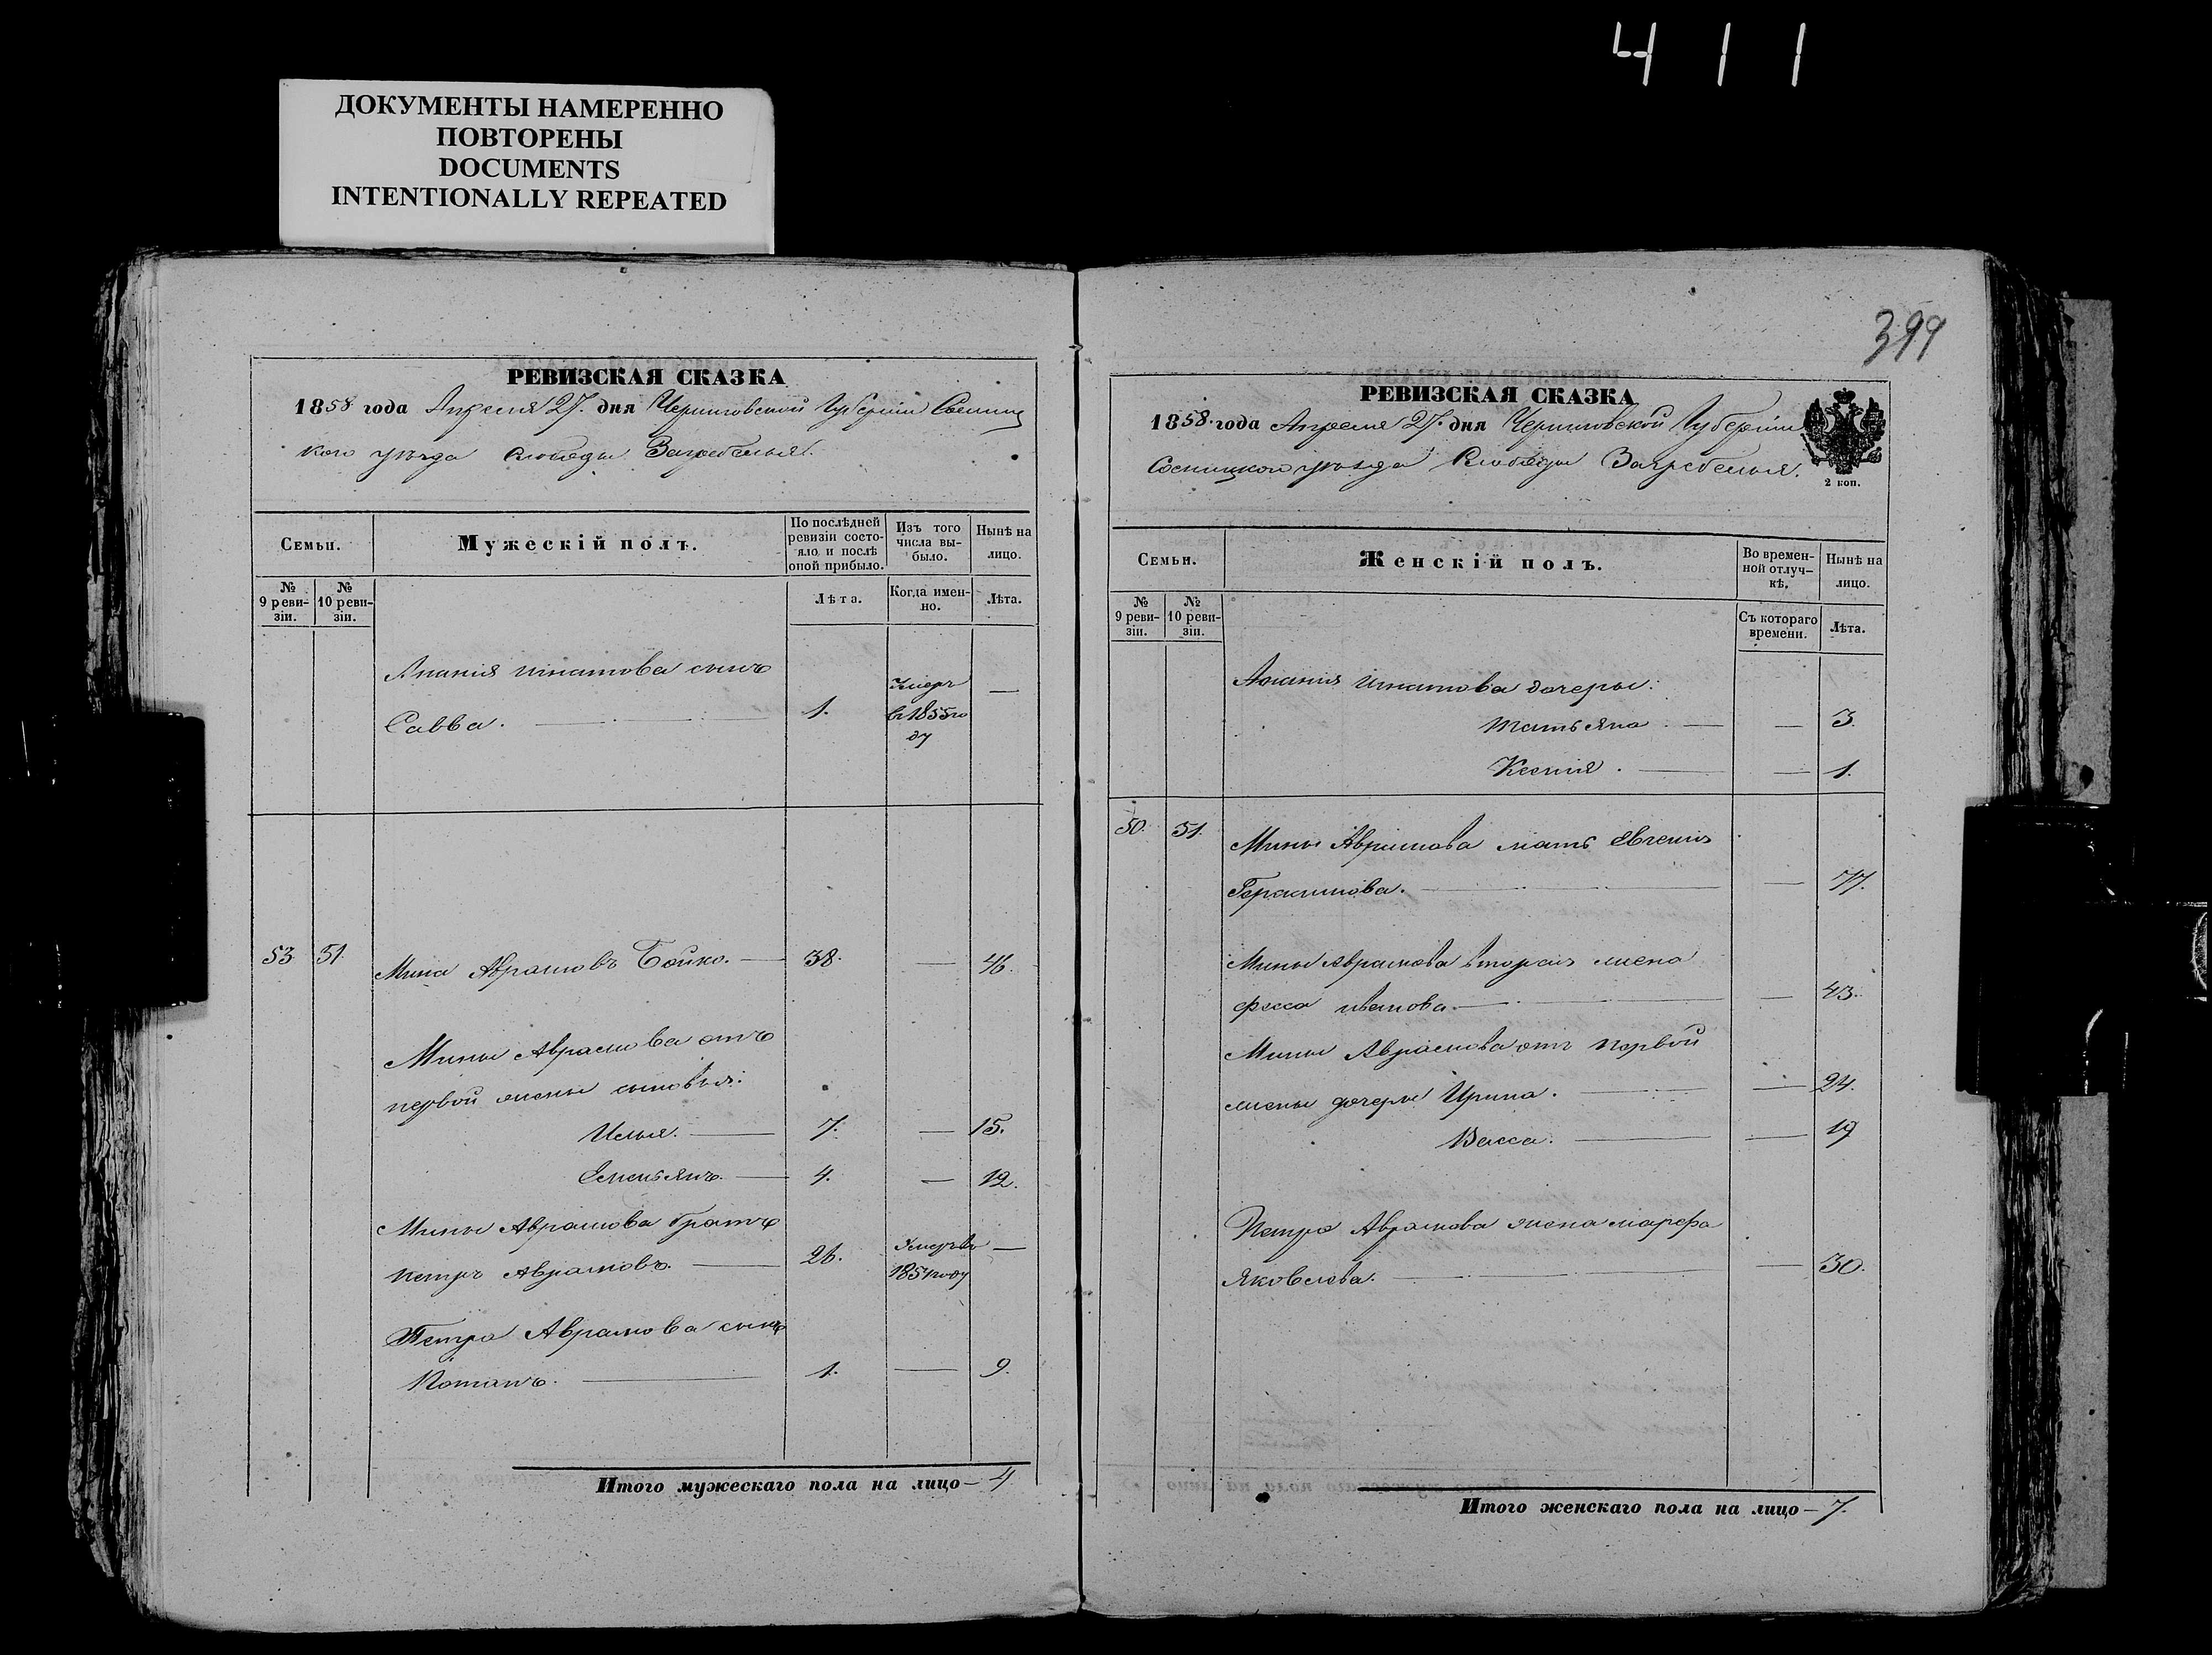 411
ДОКУМЕНТЫ НАМЕРЕННО
ПОВТОРЕНЫ
DOCUMENTS
INTENTIONALLY REPEATED
РЕВИЗСКАЯ СКАЗКА
1858 года Апреля 27. дня Черниговской Губернии Сосниц
кого уезда слободы Загребелья.
Семьи.
Мужескій полъ.
По послѣдней
ревизіи состо-
яло и послѣ
оной прибыло.
Изъ того
числа вы-
было.
Нынѣ на
лицо.
№
9 реви-
зіи.
№
10 реви-
зіи.
Лѣта.
Когда имен-
но.
Лѣта.
Анания Игнатова сынъ
Савва. — 1. Умеръ в 1855 го ду —
53 51. Мина Аврамовъ Бойко. — 38. — 46.
Мины Аврамова отъ
первой жены сыновья:
Илья. — 7. — 15.
Емельянъ. — 4. — 12.
Мины Аврамова братъ
Петръ Аврамовъ. — 26. Умеръ в 1851 году —
Петра Аврамова сынъ
Романъ. — 1. — 9.
Итого мужескаго пола на лицо — 4
399
РЕВИЗСКАЯ СКАЗКА
1858. года Апреля 27. дня Черниговской Губернии
Сосницкого уезда Слободы Загребелья.
2 коп.
Семьи.
Женскій полъ.
Во времен-
ной отлуч-
кѣ.
Нынѣ на
лицо.
№
9 реви-
зіи.
№
10 реви-
зіи.
Съ котораго
времени.
Лѣта.
Анания Игнатова дочеры:
Татьяна. — — 3.
Ксения. — — 1.
50. 51. Мины Аврамова мать Евгения
Герасимова. — — 77.
Мины Аврамова вторая жена
43.
Мины Аврамова отъ первой
жены дочеры Ирина. — — 24.
Васса. — — 19
Петра Аврамова жена Марфа
Яковлева. — — 30.
Итого женскаго пола на лицо — 7.